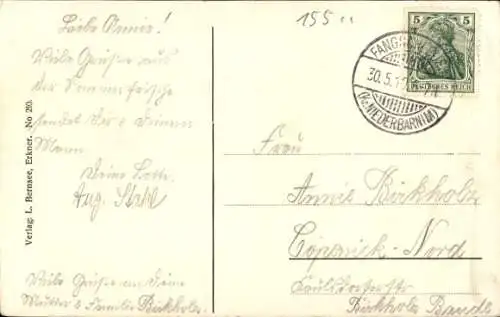 155
Liebe Annie!
Viele Grüße aus
der Sommerfrische
sendet Dir & Deinem
Mann
Deine Lotte
Aug. Stahl
Viele Grüße an Deine
Mutter & Familie Birkholz.
Verlag: L. Bernsee, Erkner. No 20.
5 5
DEUTSCHES REICH
FANG
30.5.1
(Kr. NIEDERBARNIM)
Frau
Annie Birkholz
Cöpenick-Nord
Birkholz